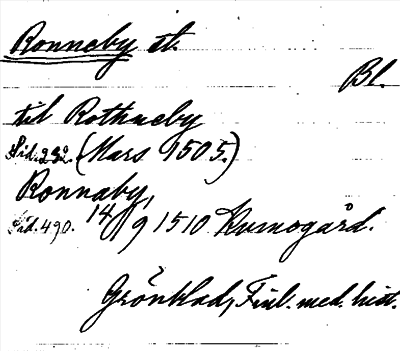 Ronneby st.
Bl.
til Rothneby
Sid. 232. (Mars 1505.)
Ronnaby,
Sid. 490. 14/9 1510 Kumogård.
Grönblad, Finl. med. hist.